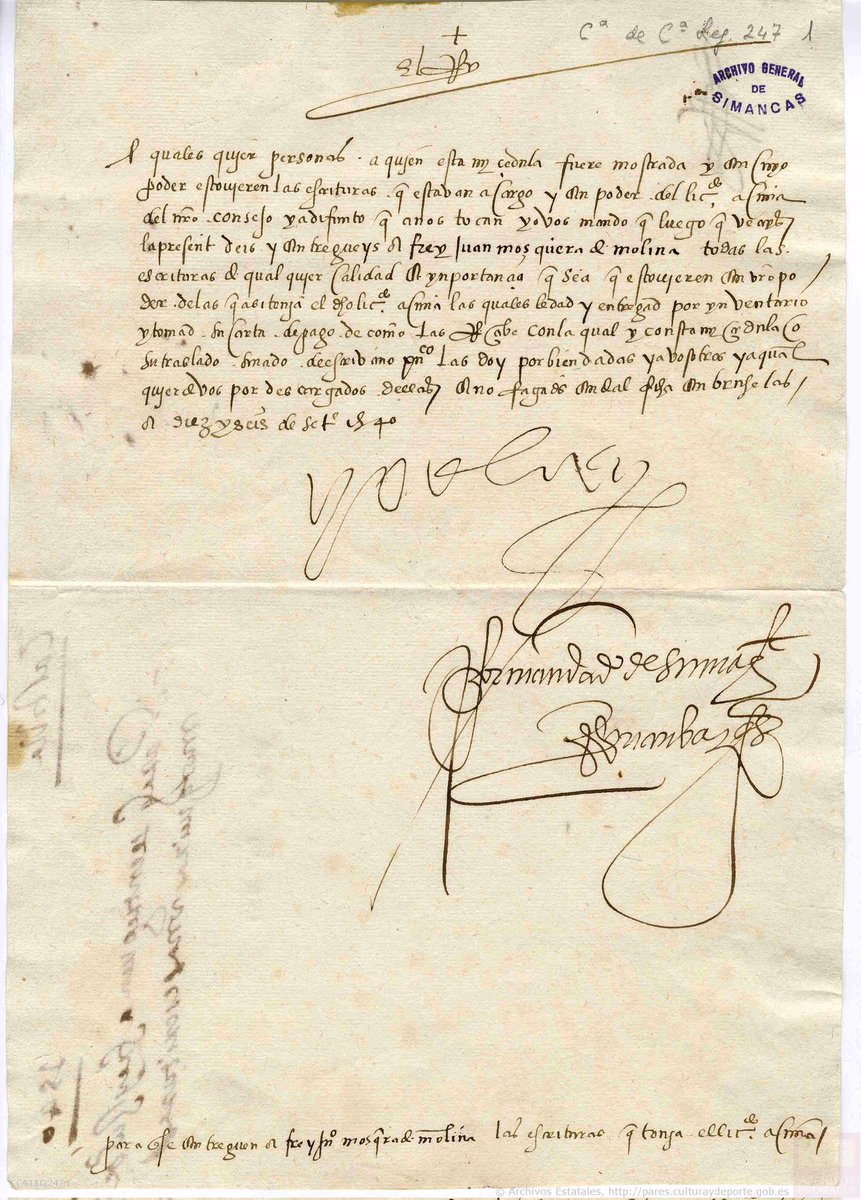 Cª de Cª Leg. 247 1
+
El Rey
ARCHIVO GENERAL
DE
SIMANCAS
A quales quier personas a quien esta my cedula fuere mostrada y en cuyo
poder estovieren las escrituras q estavan a cargo y en poder del licdo acuña
del nro consejo ya difunto q a nos tocan yo vos mando q luego q veays
la present deis y entregueys a frey Juan mosquera de molina todas las
escrituras de qual quier calidad e ynportançia q sea q estovieren en vro po
der de las q asi tenja el dho licdo acuña las quales le dad y entregad por ynventario
y tomad su carta de pago de como las Recabe con la qual y con esta my cedula o
su traslado sinado de escrivano puco las doy por bien dadas y a vosotros y a qual
quier de vos por descargados dellas e no fagades ende al fha en bruselas
a diez y seis de setº 1540
yo el Rey
por mandado de su magt
para q se entreguen a frey juº mosqra de molina las escrituras q tenja el licdo acuña
CCA,LEG,247,1
© Archivos Estatales, http://pares.culturaydeporte.gob.es